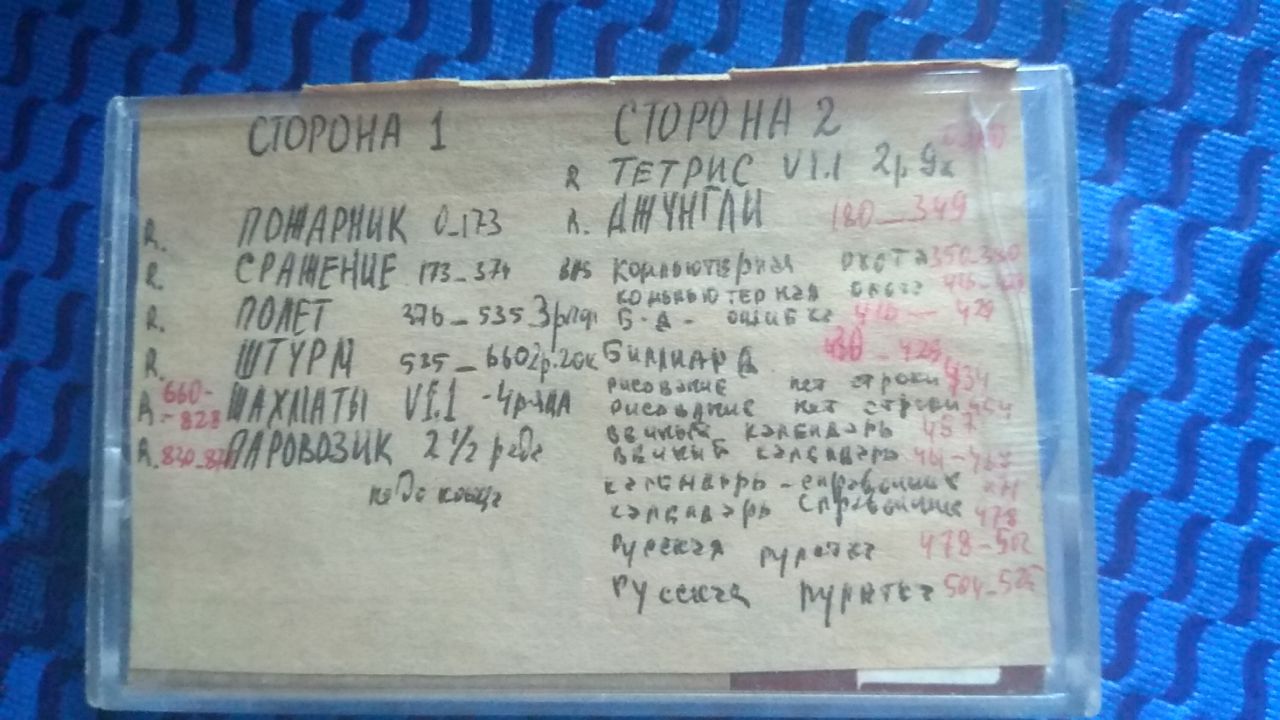 СТОРОНА 1
R. ПОЖАРНИК 0-173
R. СРАЖЕНИЕ 173-374
R. ПОЛЕТ 376-535
R. ШТУРМ 535-660
R. 660-828 ШАХМАТЫ V1.1
R. ПАРОВОЗИК 2 1/2
не до конца
СТОРОНА 2
R ТЕТРИС V1.1
R. ДЖУНГЛИ 180-349
BAS Компьютерная охота
компьютерная охота
Б-Д- ошибка
БИЛЛИАРД
рисование нет строки 434
рисование нет строки
вечный календарь 457
вечный календарь
календарь-справочник
календарь справочник 478
Русская рулетка 478-502
Русская рулетка